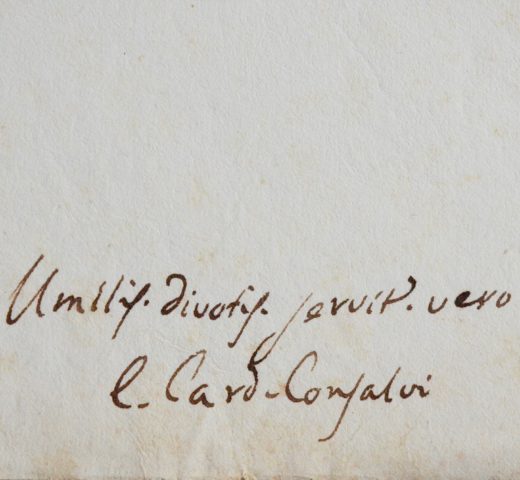 Umilis. divotis. servit. vero
E. Card. Consalvi